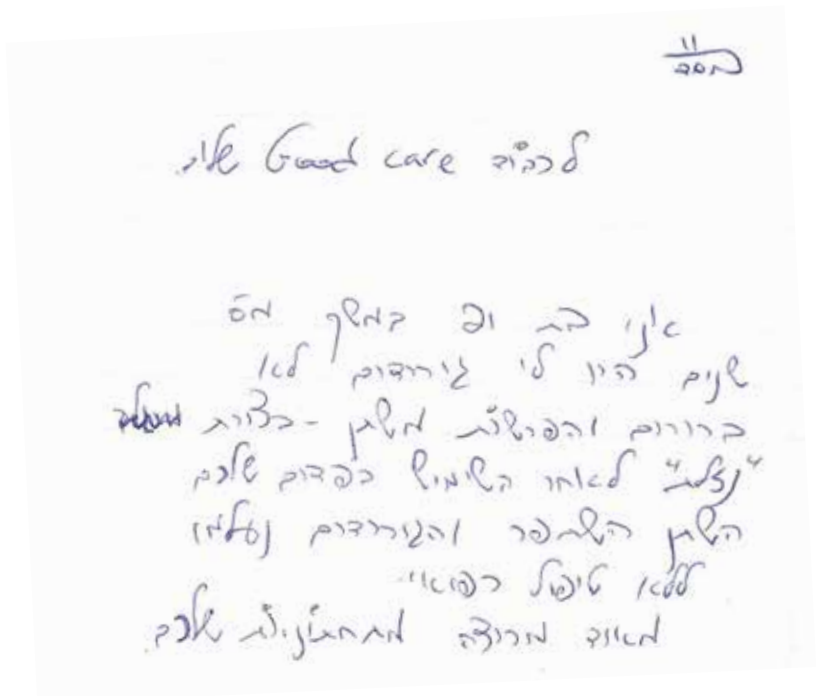 בס"ד
לכבוד שירות Good care שלום
אני בת ומ במשך מס'
שנים היו לי גירודים לא
ברורים והפרשות משתן - בצורת
"נזלת" לאחר השימוש בפדים שלכם
השתן השתפר והגירודים נעלמו
ללא טיפול רפואי.
מאוד מרוצה מתחתוניות שלכם.